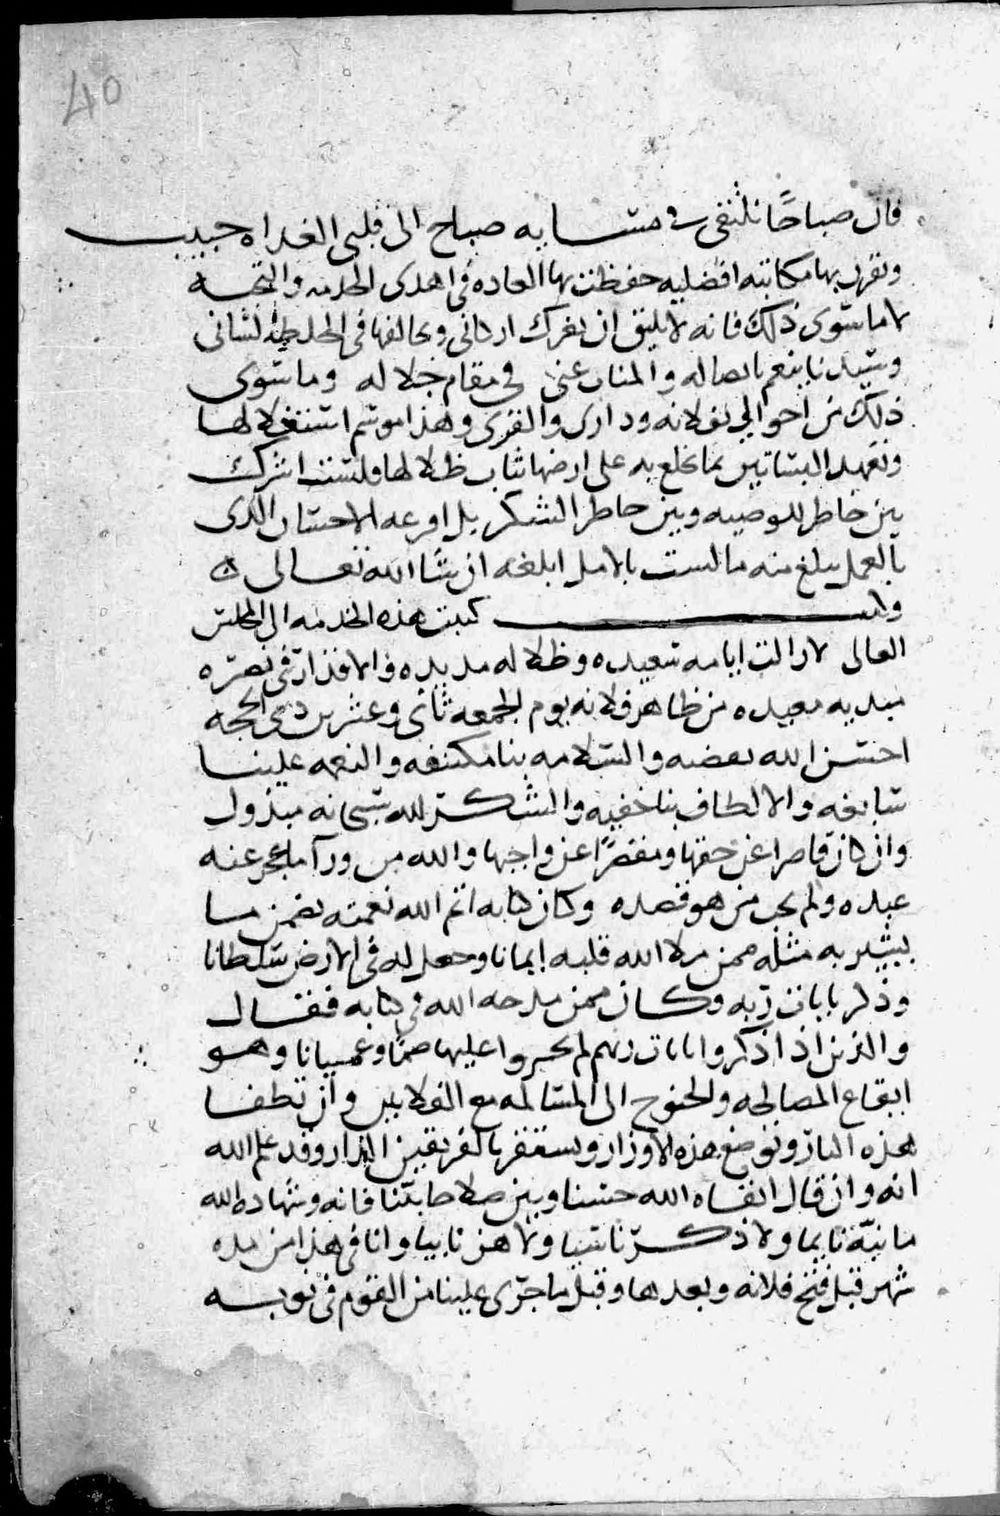 40
فان صباحًا نلتقي في مسايه صباح الى قلبي الغداه حبيب
وتقرن بها مكاتبه افضليه حفظت بها العاده في اهدى الخدمه والتحيه
لا ما سوى ذلك فانه لا يليق ان
وسيدنا ينعم بايصاله والمناب عني في مقام جلاله وما سوى
ذلك من احوالي بفلانه وداري والقرى وهذا موسم استغلالها
وتعهد البساتين بما يخلع به على ارضها ثياب ظلالها ولست اشرك
بين خاطر للوصيه وبين خاطر الشكر بل اوزعه الاحسان الذي
بالعمل يبلغ منه ما لست بالامل ابلغه ان شا الله تعالى ه
وله كتبت هذه الخدمه الى المجلس
العالي لا زالت ايامه سعيده وظلاله مديده والاقدار في نصره
مبديه معيده من ظاهر فلانه يوم الجمعه ثاني وعشرين ذي الحجه
احسن الله بعضه والسلامه بنا مكتنفه والنعمه علينا
سابغه والالطاف بنا خفيه والشكر لله سبحانه مبذول
وان كان قاصرا عن حقها ومقصرًا عن واجبها والله من ورآ ما عجز عنه
عبده ولم يخب من هو قصده وكان كتابه اتم الله نعمته تضمن ما
يشير به مثله ممن ملا الله قلبه ايمانا وجعل له في الارض سلطانا
وذكر بايات ربه وكان ممن مدحه الله في كتابه فقال
والذين اذا ذكروا بايات ربهم لم يخروا عليها صمًا وعميانا وهو
ايقاع المصالحه والجنوح الى المسالمه مع الفلانيين وان تطفا
هذه النار وتوضع هذه الاوزار ويستقر بالفريقين الدار وقد علم الله
انه وان قال ابقاه الله حسنا وبين صلاحا بينا فانه وشهاده الله
ما نبّه نايما ولا ذكّر ناسيا ولا هز نابيا وانا في هذا من مده
شهر قبل فتح فلانه وبعدها وقبل ما جرى علينا من القوم في نوبه